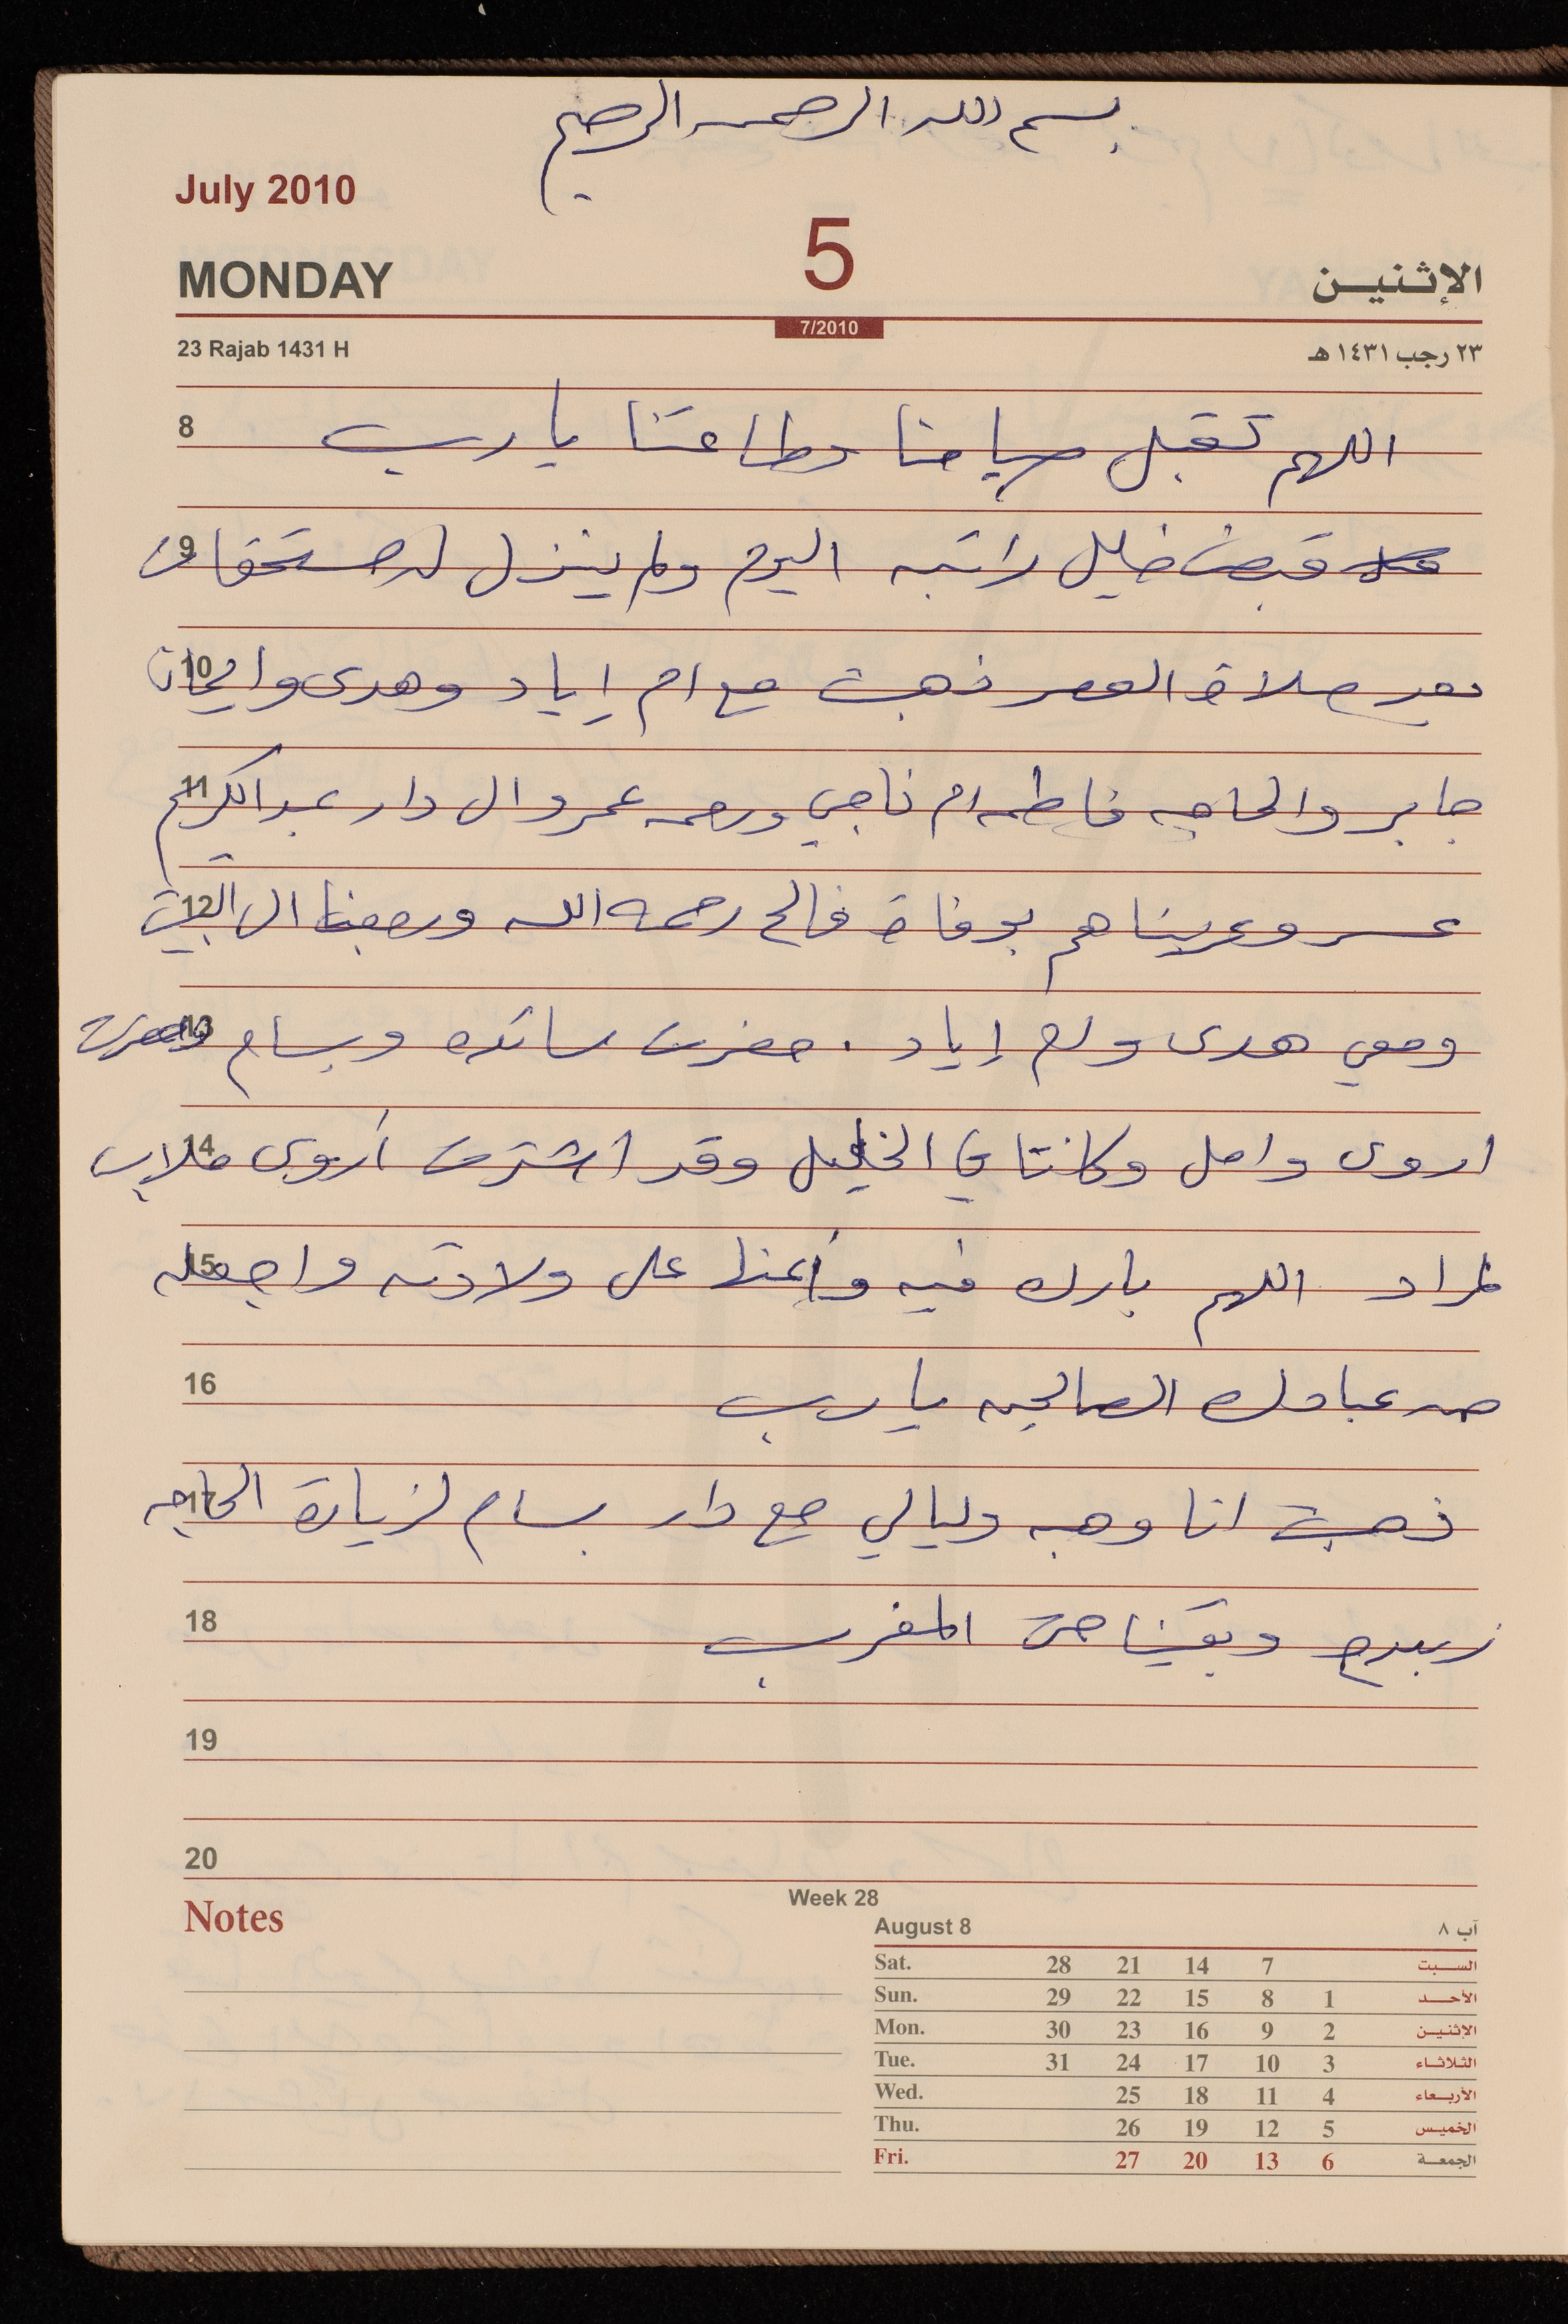 بسم الله الرحمن الرحيم
July 2010
5
MONDAY الإثنين
7/2010
23 Rajab 1431 H ٢٣ رجب ١٤٣١ هـ
8 اللهم تقبل صيامنا وطاعتنا يا رب
9 قبض خليل راتبه اليوم ولم ينزل له مستحقات
10 بعد صلاة العصر ذهبت مع ام إياد وهدى وايمان
11 جابر والحاجه فاطمه ام ناجي ورحمه عمرو ال دار عبد الكريم
12 عسر وعزيناهم بوفاة فالح رحمه الله ورجعنا ال البيت
13 ومعي هدى وام إياد . حضرت سائده وبسام وحضرت
14 اروى وامل وكانتا في الخليل وقد اشترت أروى ملابس
15 لمراد اللهم بارك فيه وأعنها على ولادته واجعله
16 من عبادك الصالحين يا رب
17 ذهبت انا وهبه وليالي مع دار بسام لزيارة الحاجه
18 وبقينا حتى المغرب
19
20
Notes
Week 28
August 8 آب ٨
Sat. 28 21 14 7 السبت
Sun. 29 22 15 8 1 الأحد
Mon. 30 23 16 9 2 الإثنين
Tue. 31 24 17 10 3 الثلاثاء
Wed. 25 18 11 4 الأربعاء
Thu. 26 19 12 5 الخميس
Fri. 27 20 13 6 الجمعة